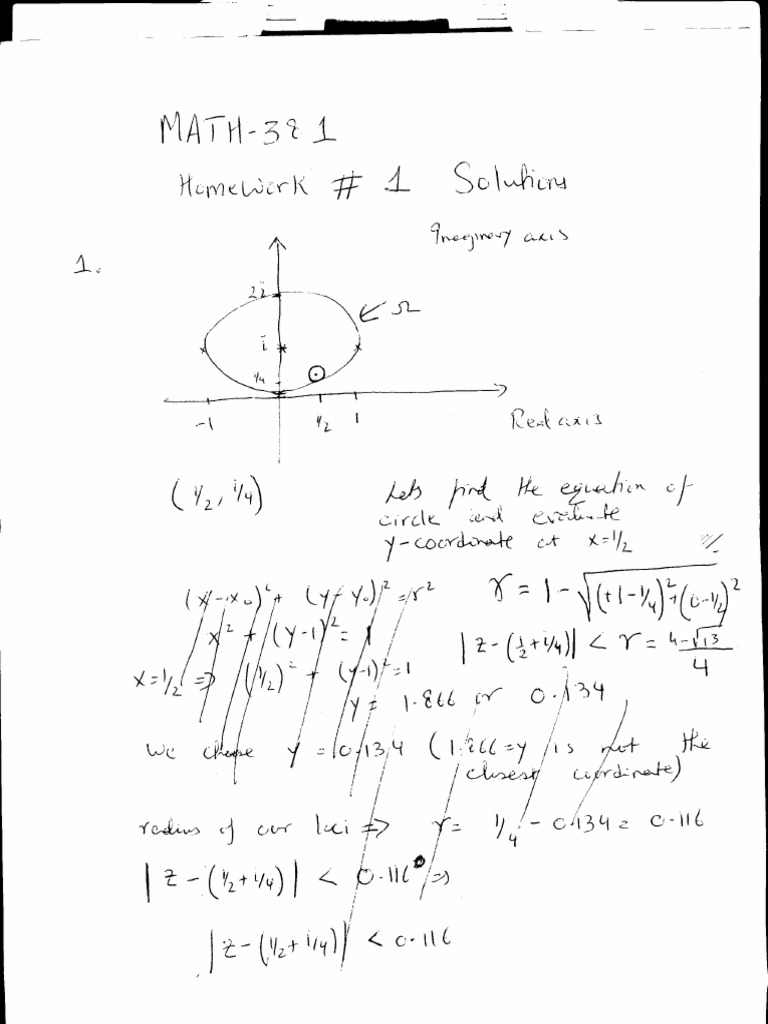 MATH-381
Homework # 1 Solutions
Imaginary axis
1.
2i
Ω
i
1/4
-1
1/2
1
Real axis
(1/2, i/4)
Lets find the equation of
circle and evaluate
y-coordinate at x=1/2
(x-x₀)² + (y-y₀)² = r²
r = 1 - √((+1-1/4)² + (0-1/2)²)
x² + (y-1)² = 1
|z - (1/2 + i/4)| < r = (4-√13)/4
x=1/2 => (1/2)² + (y-1)² = 1
y = 1.866 or 0.134
We chose y = 0.134 (1.866=y is not the
closest coordinate)
radius of our loci => r = 1/4 - 0.134 = 0.116
|z - (1/2 + i/4)| < 0.116 =>
|z - (1/2 + i/4)| < 0.116